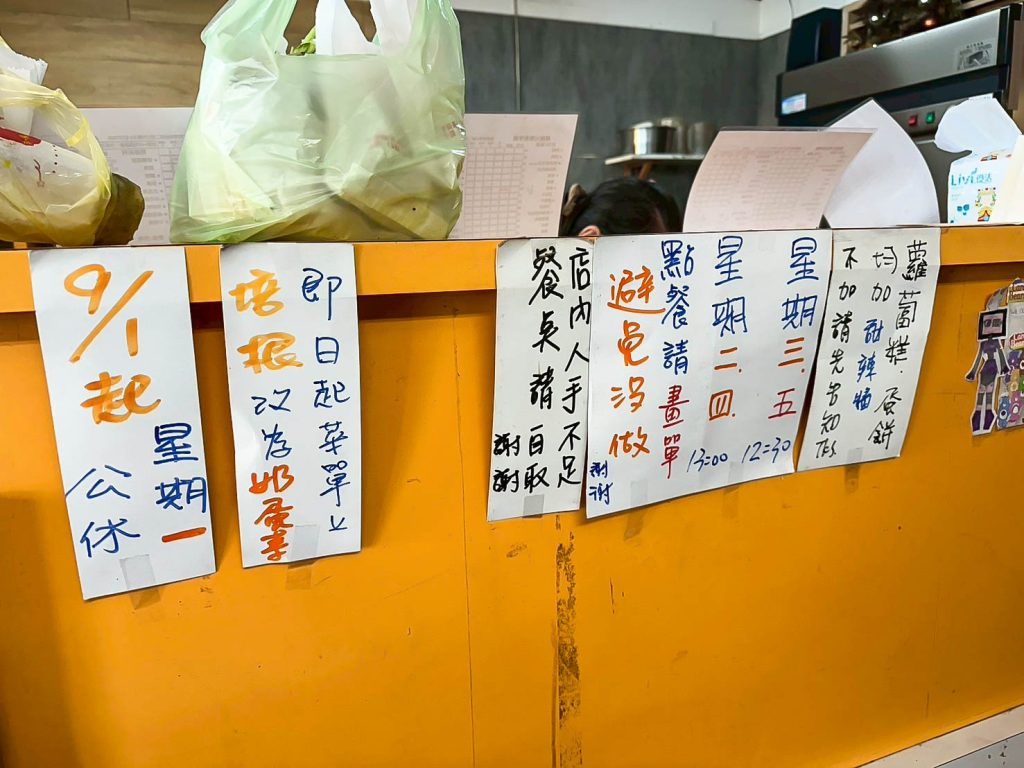 9/1
起
星期一
公休
即日起菜單上
培根改為奶蛋素
店內人手不足
餐奌請自取
謝謝
星期三.五
12:30
星期二.四.
13:00
點餐請畫單
避免沒做
謝謝
蘿蔔糕.蛋餅
均加甜辣醬
不加請先告知
Livi